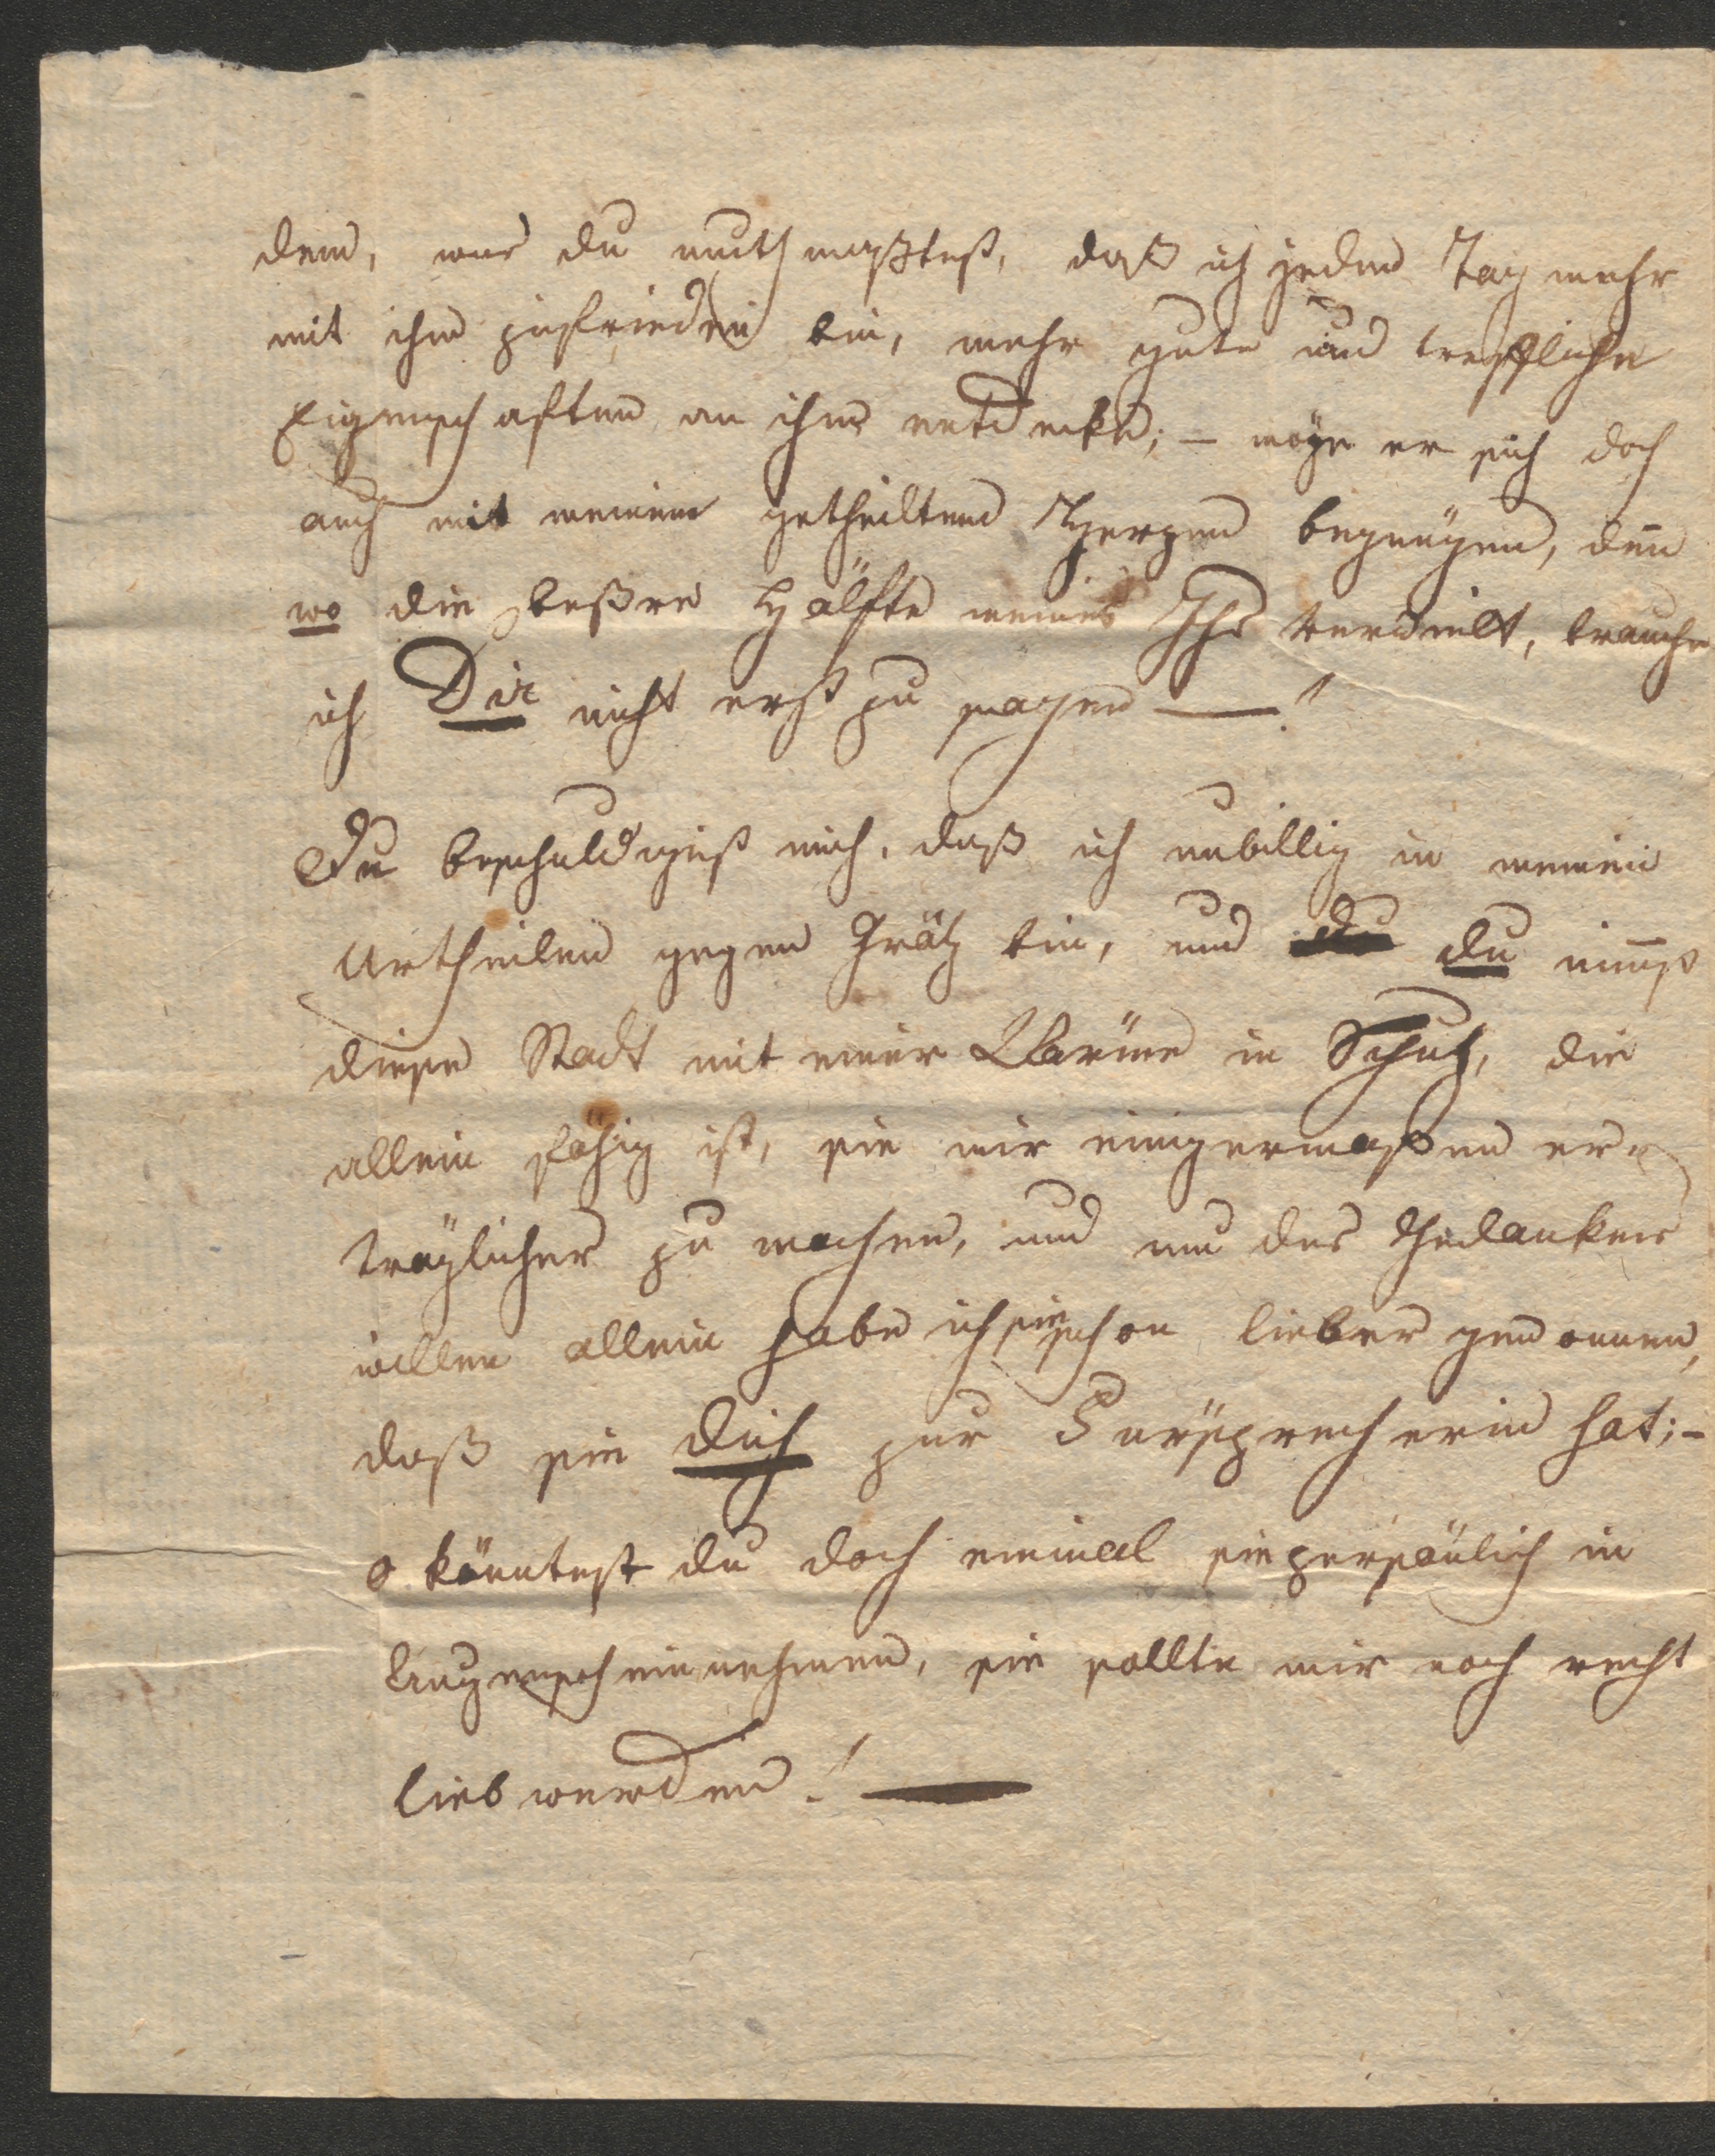 dem, was du muthmaßtest, daß ich jeden Tag mehr
mit ihm zufrieden bin, mehr gute und treffliche
Eigenschaften an ihm entdecke; – möge er sich doch
auch mit meinem getheilten Herzen begnügen, deñ
wo die beßre Hälfte meines Ichs verweilt, brauche
ich Dir nicht erst zu sagen —!
Du beschuldigest mich, daß ich unbillig in meinen
Urtheilen gegen Grätz bin, und du du nim̄st
diese Stadt mit einer Wärme in Schutz, die
allein fähig ist, sie mir einigermaßen er=
träglicher zu machen, und um des Gedankens
willen allein habe ich sie schon lieber gewonnen,
daß sie Dich zur Fürsprecherin hat; –
o könntest du doch einmal sie persönlich in
Augenschein nehmen, sie sollte mir noch recht
lieb werden! —